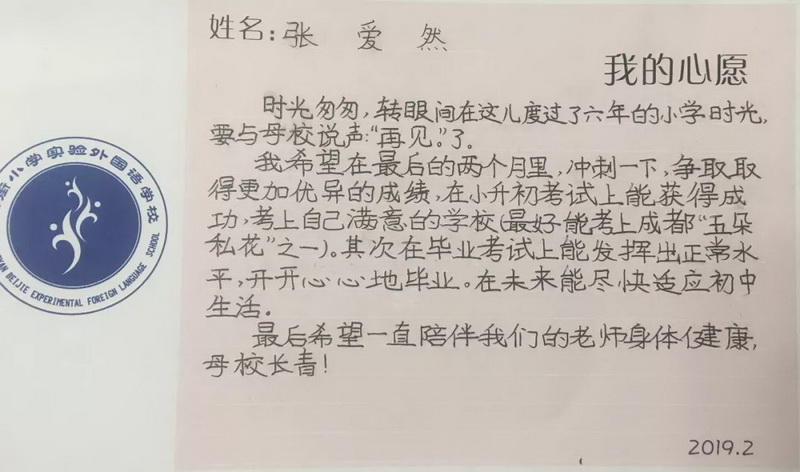 姓名：张 爱 然
我的心愿
时光匆匆，转眼间在这儿度过了六年的小学时光，
要与母校说声：“再见。”了。
我希望在最后的两个月里，冲刺一下，争取取
得更加优异的成绩，在小升初考试上能获得成
功，考上自己满意的学校（最好能考上成都“五朵
私花”之一）。其次在毕业考试上能发挥出正常水
平，开开心心地毕业。在未来能尽快适应初中
生活。
最后希望一直陪伴我们的老师身体健康，
母校长青！
2019.2
小学实验外国语学校
BEIJIE EXPERIMENTAL FOREIGN LANGUAGE SCHOOL